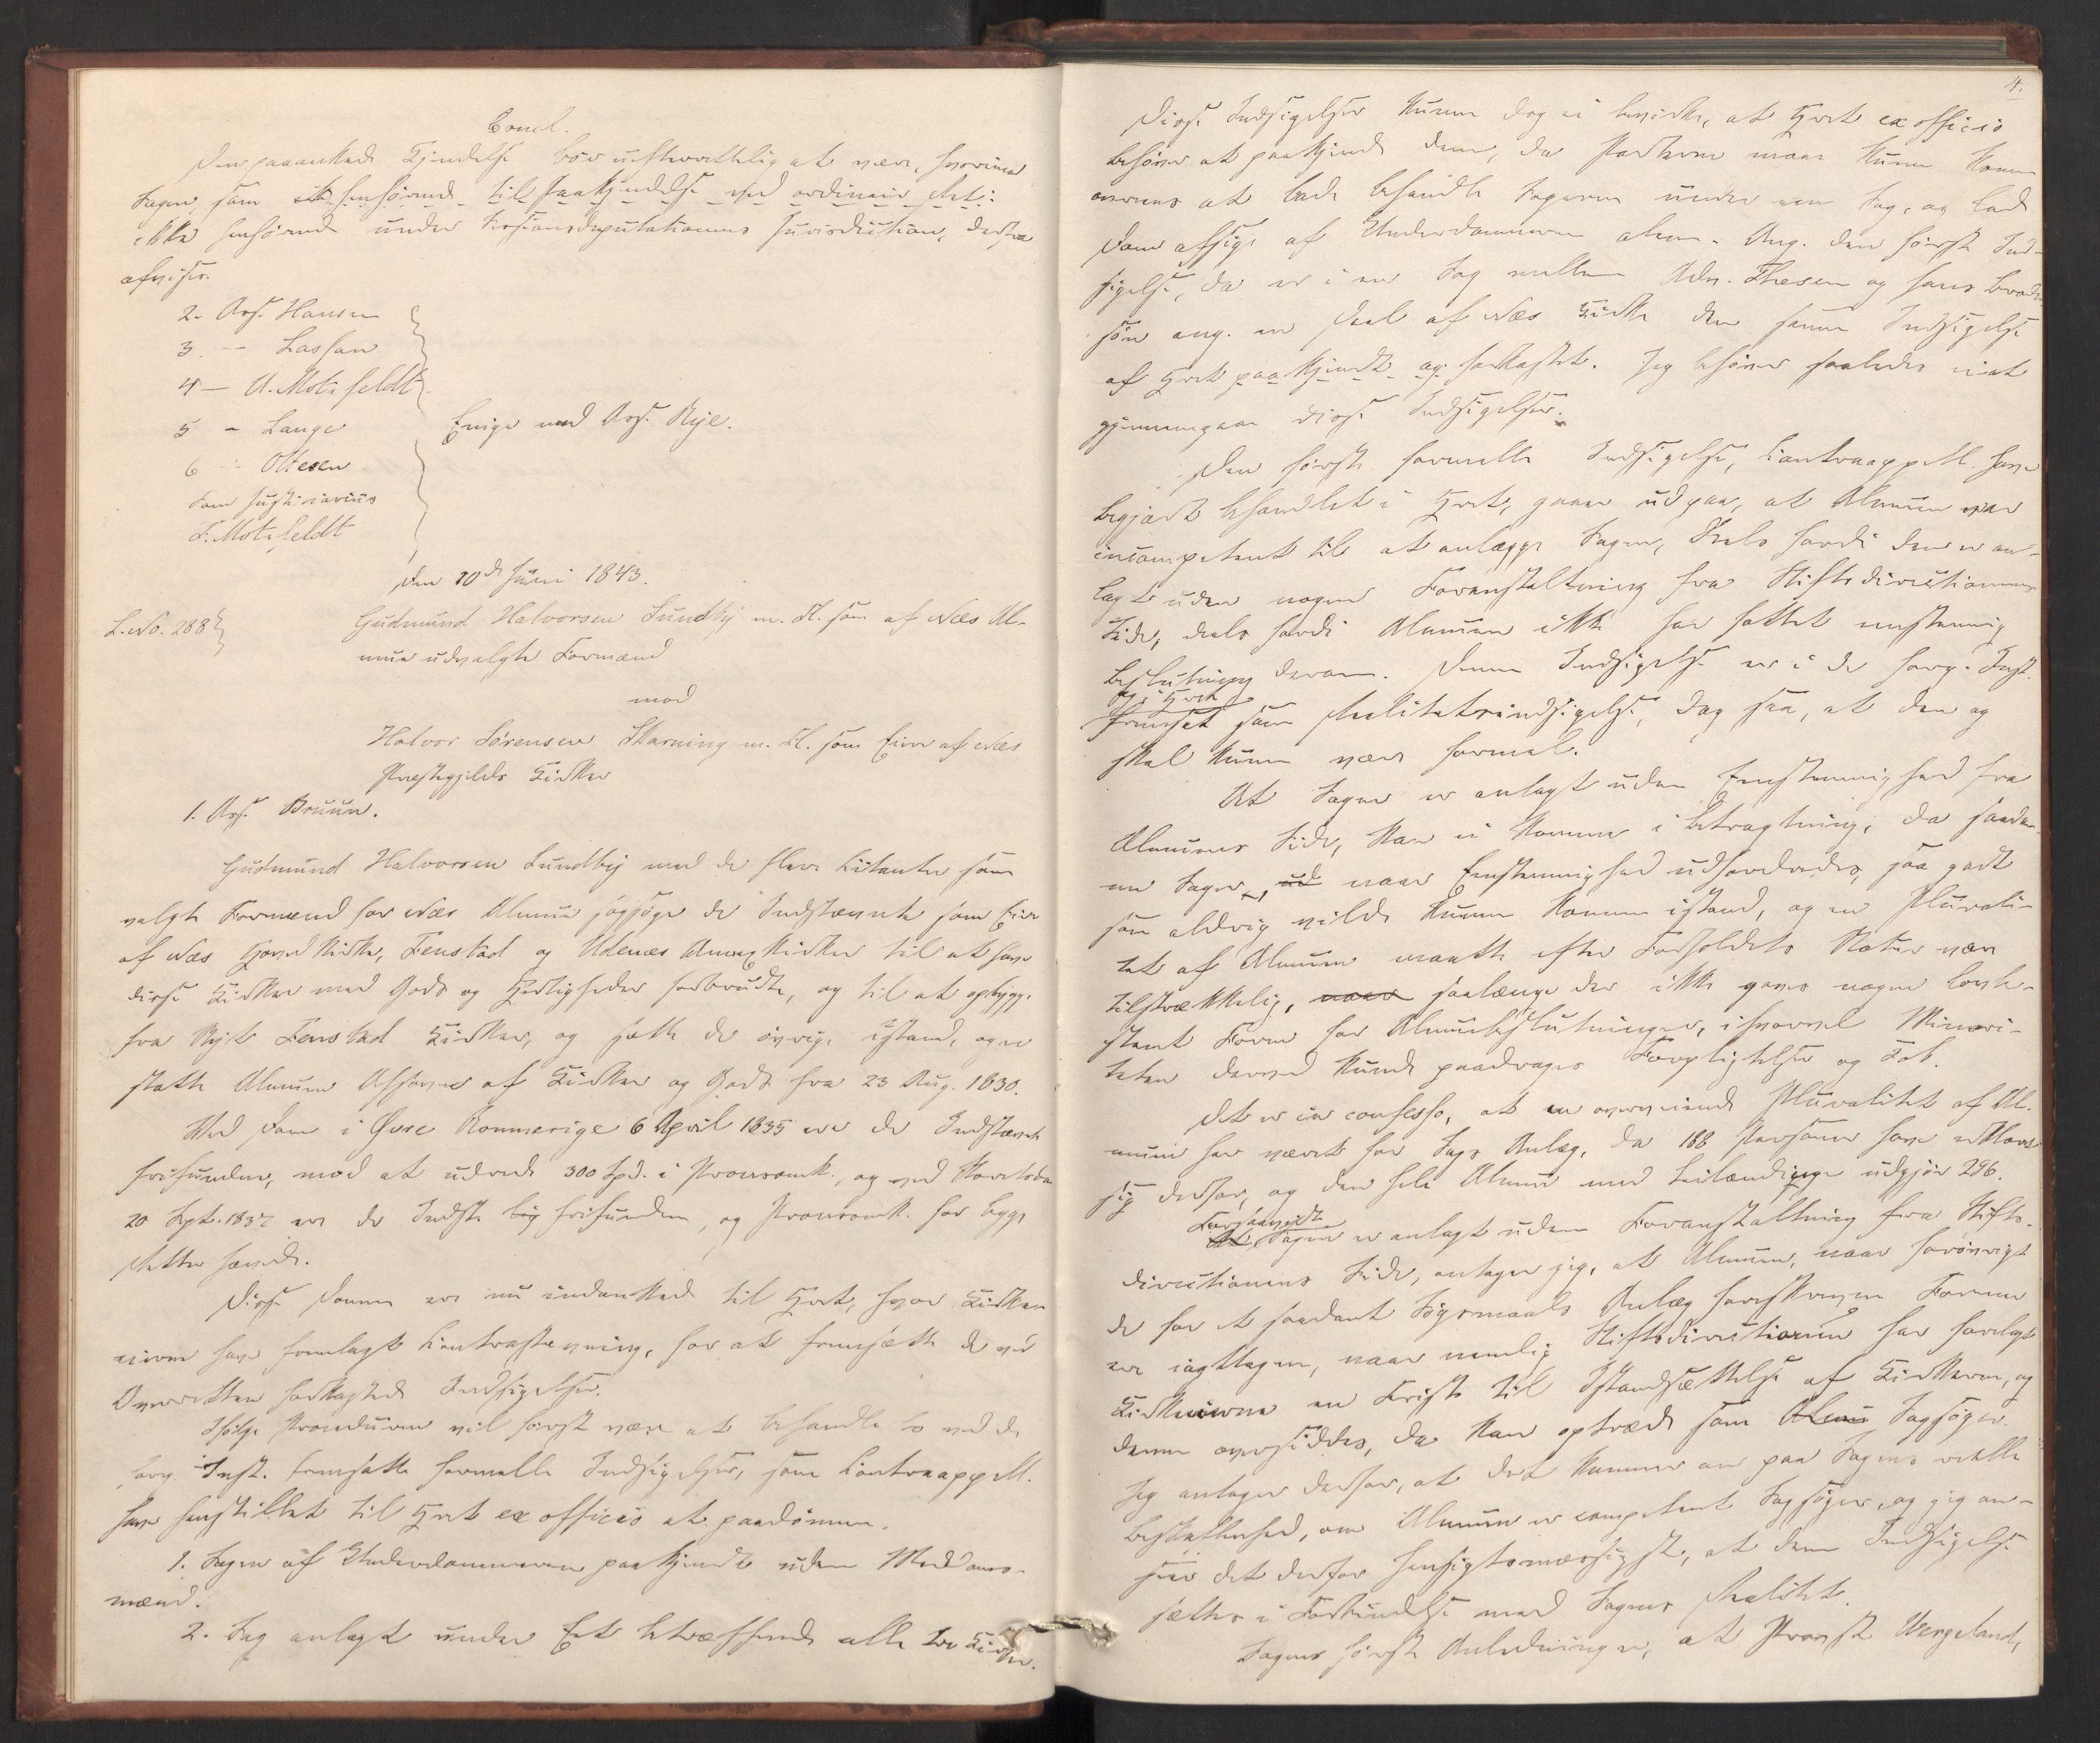 Concl.
Den paaankede Kjendelse bør uefterrettelig at være, hvorimod
Sagen som ikke henhørende til Paakjendelse ved ordinair Ret i
ikke henhørende under Kirssionsdeputationens Jurisdiction, derfra
afvises.
2. Ass. Hansen
3 — Lasson
4 — U. Motzfeldt
5 - Lange
Enige med Ass. Rye.
6 - Ottesen
Som Justitiarius
F. Motzfeldt
Den 10de Juni 1843.
L. No. 288
Gudmund Halvorsen Sundby m. Fl. som af Næs Al-
mue udvalgte Formænd
mod
Halvor Sørensen Skarning m. Fl. som Eiere af Næs
Præstegjelds Kirker
1. Ass. Bruun.
Gudmund Halvorsen Sundby med de flere Citanter som
valgte Formænd for Næs Almue sagsøge de Indstævnte som Eiere
af Næs Hovedkirke, Fenstad og Udenæs Annexkirker til at have
disse Kirker med Gods og Herligheder forbrudte, og til at opbygge
fra Nyt Fenstad Kirker, og sætte de øvrige istand, og er
statte Almuen Afgiver af Kirker og Gods fra 23 Aug. 1830.
Ved Dom i Øvre Rommerige 6 April 1835 ere de Indstævnte
frifundne, mod at udrede 300 Spd. i Procesomk., og ved Stiftsdom
20 Sept. 1837 ere de Indst. frifundne, og Procesomk. for begge
Retter hævede.
Disse Domme ere nu indankede til Hret, hvor Kirke-
eierne have fremlagt Contrastævning, for at fremsætte de ved
Overretten forkastede Indsigelser.
Ifølge Proceduren vil først være at behandle to ved de
forg. Inst. fremsatte formelle Indsigelser, som Contraappell.
have henstillet til Hret ex officio at paadømme.
1. Sagen af Underdommeren paakjendt uden Meddoms-
mænd.
2. Sag anlagt under Et betræffende alle tre Kirker.
4.
Disse Indsigelser kunne dog ei bevirke, at Hret ex officio
behøver at paakjende dem, da Parterne maae kunne komme
overens at lade behandle Sagerne under een Sag, og lade
Dom afsige af Underdommeren alene. Ang. den første Ind-
sigelse, da er i en Sag mellem Adv. Thesen og hans Broder-
søn ang. en Deel af Næs Kirke den samme Indsigelse
af Hret paakjendt og forkastet. Jeg behøver saaledes ei at
gjennemgaae disse Indsigelser.
Den første formelle Indsigelse, Contraappell. have
begjært behandlet i Hret, gaaer ud paa, at Almuen var
incompetent til at anlægge Sagen, deels fordi den er an-
lagt uden nogen Foranstaltning fra Stiftsdirectionens
Side, deels fordi Almuen ikke har fattet eenstemmig
Beslutning derom. Denne Indsigelse er i de forg. Inst.
og i Hret
fremsat som Realitetsindsigelse, dog saa, at den og
skal kunne være formel.
At Sagen er anlagt uden Eenstemmighed fra
Almuens Side, kan ei komme i Betragtning, da saadan-
ne Sager, naar Eenstemmighed udfordredes, saa godt
som aldrig vilde kunne komme istand, og en Plurali-
tet af Almuen maatte efter Forholdets Natur være
tilstrækkelig, saalænge der ikke gaves nogen lovbe-
stemt Form for Almuebeslutninger, i hvorvel Minori-
teten derved kunde paadrages Forpligtelser og Tab.
Det er in confesso, at en overveiende Pluralitet af Al-
muen har været for Sags Anlæg, da 188 Personer have erklæret
sig derfor, og den hele Almue med Leilændinge udgjør 296.
Forsaavidt
Sagen er anlagt uden Foranstaltning fra Stifts-
directionens Side, antager jeg, at Almuen, naar forøvrigt
de for et saadant Søgsmaals Anlæg foreskrevne Former
ere iagttagne, naar nemlig Stiftsdirectionen har forelagt
Kirkeeierne en Frist til Istandsættelse af Kirkerne, og
denne oversiddes, da kan optræde som Sagsøger.
Jeg antager derfor, at det kommer an paa Sagens reelle
Beskaffenhed, om Almuen er competent Sagsøger, og jeg an-
seer det derfor hensigtsmæssigst, at denne Indsigelse
sættes i Forbindelse med Sagens Realitet.
Sagens første Anledning er, at Provst Wergeland,